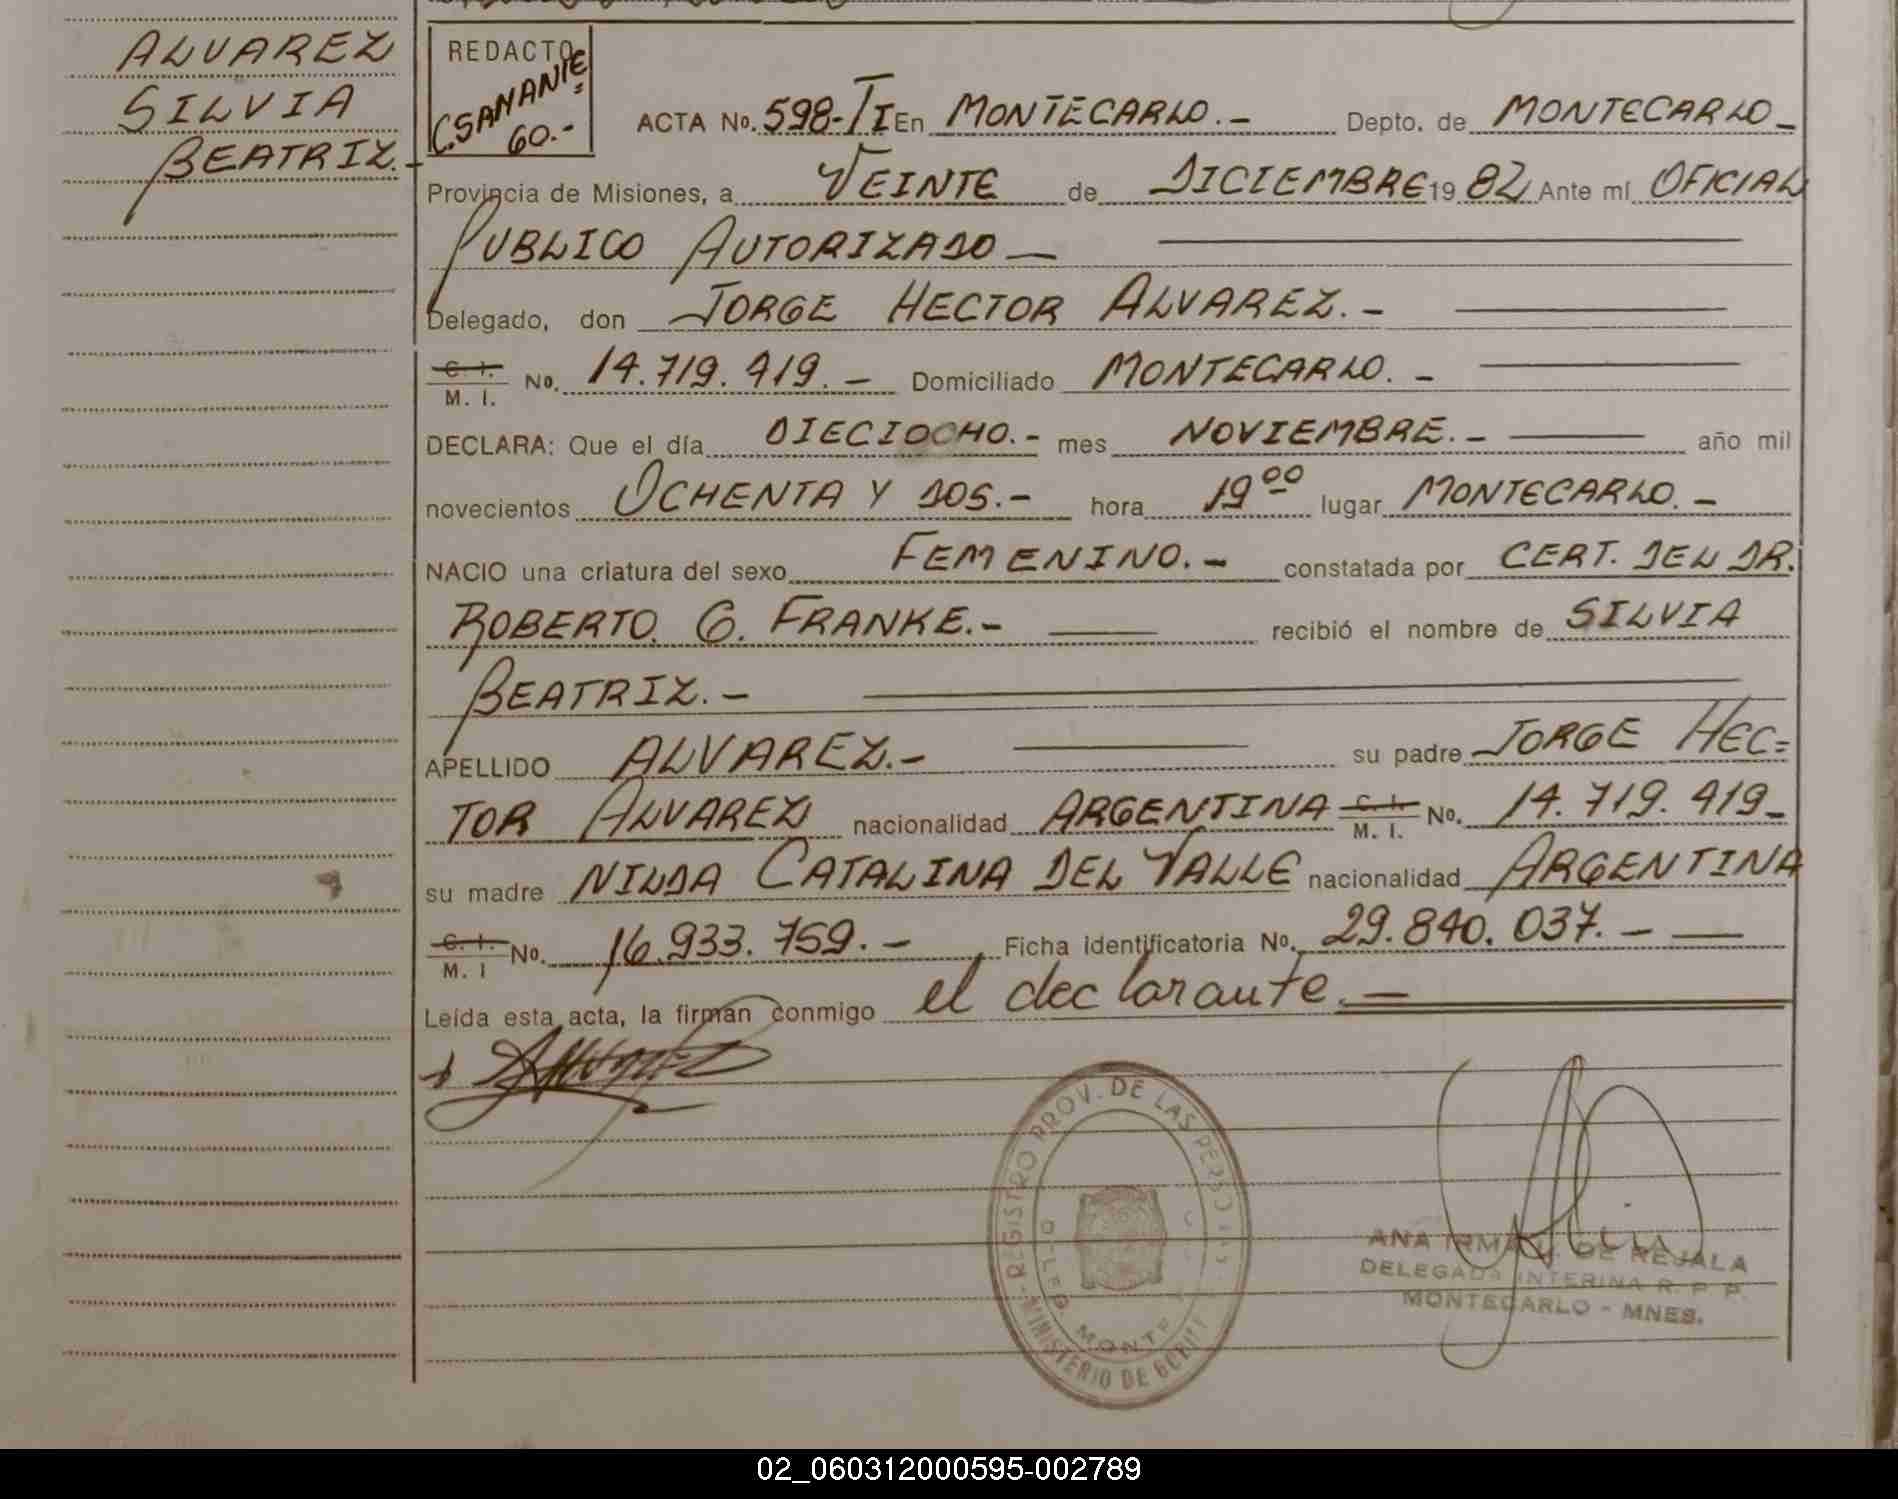 ALVAREZ
SILVIA
BEATRIZ.-
REDACTO
C. SAMANIE
60.-
ACTA No. 598-TI En MONTECARLO.- Depto. de MONTECARLO-
Provincia de Misiones, a VEINTE de DICIEMBRE 1982 Ante mí OFICIAL
PUBLICO AUTORIZADO—
Delegado, don JORGE HECTOR ALVAREZ.-
C. I. M. I. No. 14.719.419.- Domiciliado MONTECARLO.-
DECLARA: Que el día DIECIOCHO.- mes NOVIEMBRE.- año mil
novecientos OCHENTA Y DOS.- hora 19⁰⁰ lugar MONTECARLO.-
NACIO una criatura del sexo FEMENINO.- constatada por CERT. DEL DR.
ROBERTO G. FRANKE.- recibió el nombre de SILVIA
BEATRIZ.-
APELLIDO ALVAREZ.- su padre JORGE HEC=
TOR ALVAREZ nacionalidad ARGENTINA C. I. M. I. No. 14.719.419-
su madre NILDA CATALINA DEL VALLE nacionalidad ARGENTINA
C. I. M. I No. 16.933.759.- Ficha identificatoria No. 29.840.037.-
Leída esta acta, la firman conmigo el declarante.-
REGISTRO PROV. DE LAS PERSONAS
DELEG. MONTE
MINISTERIO DE GOB
ANA IRMA DE REJALA
DELEGADA INTERINA R. P. P.
MONTECARLO - MNES.
02_060312000595-002789